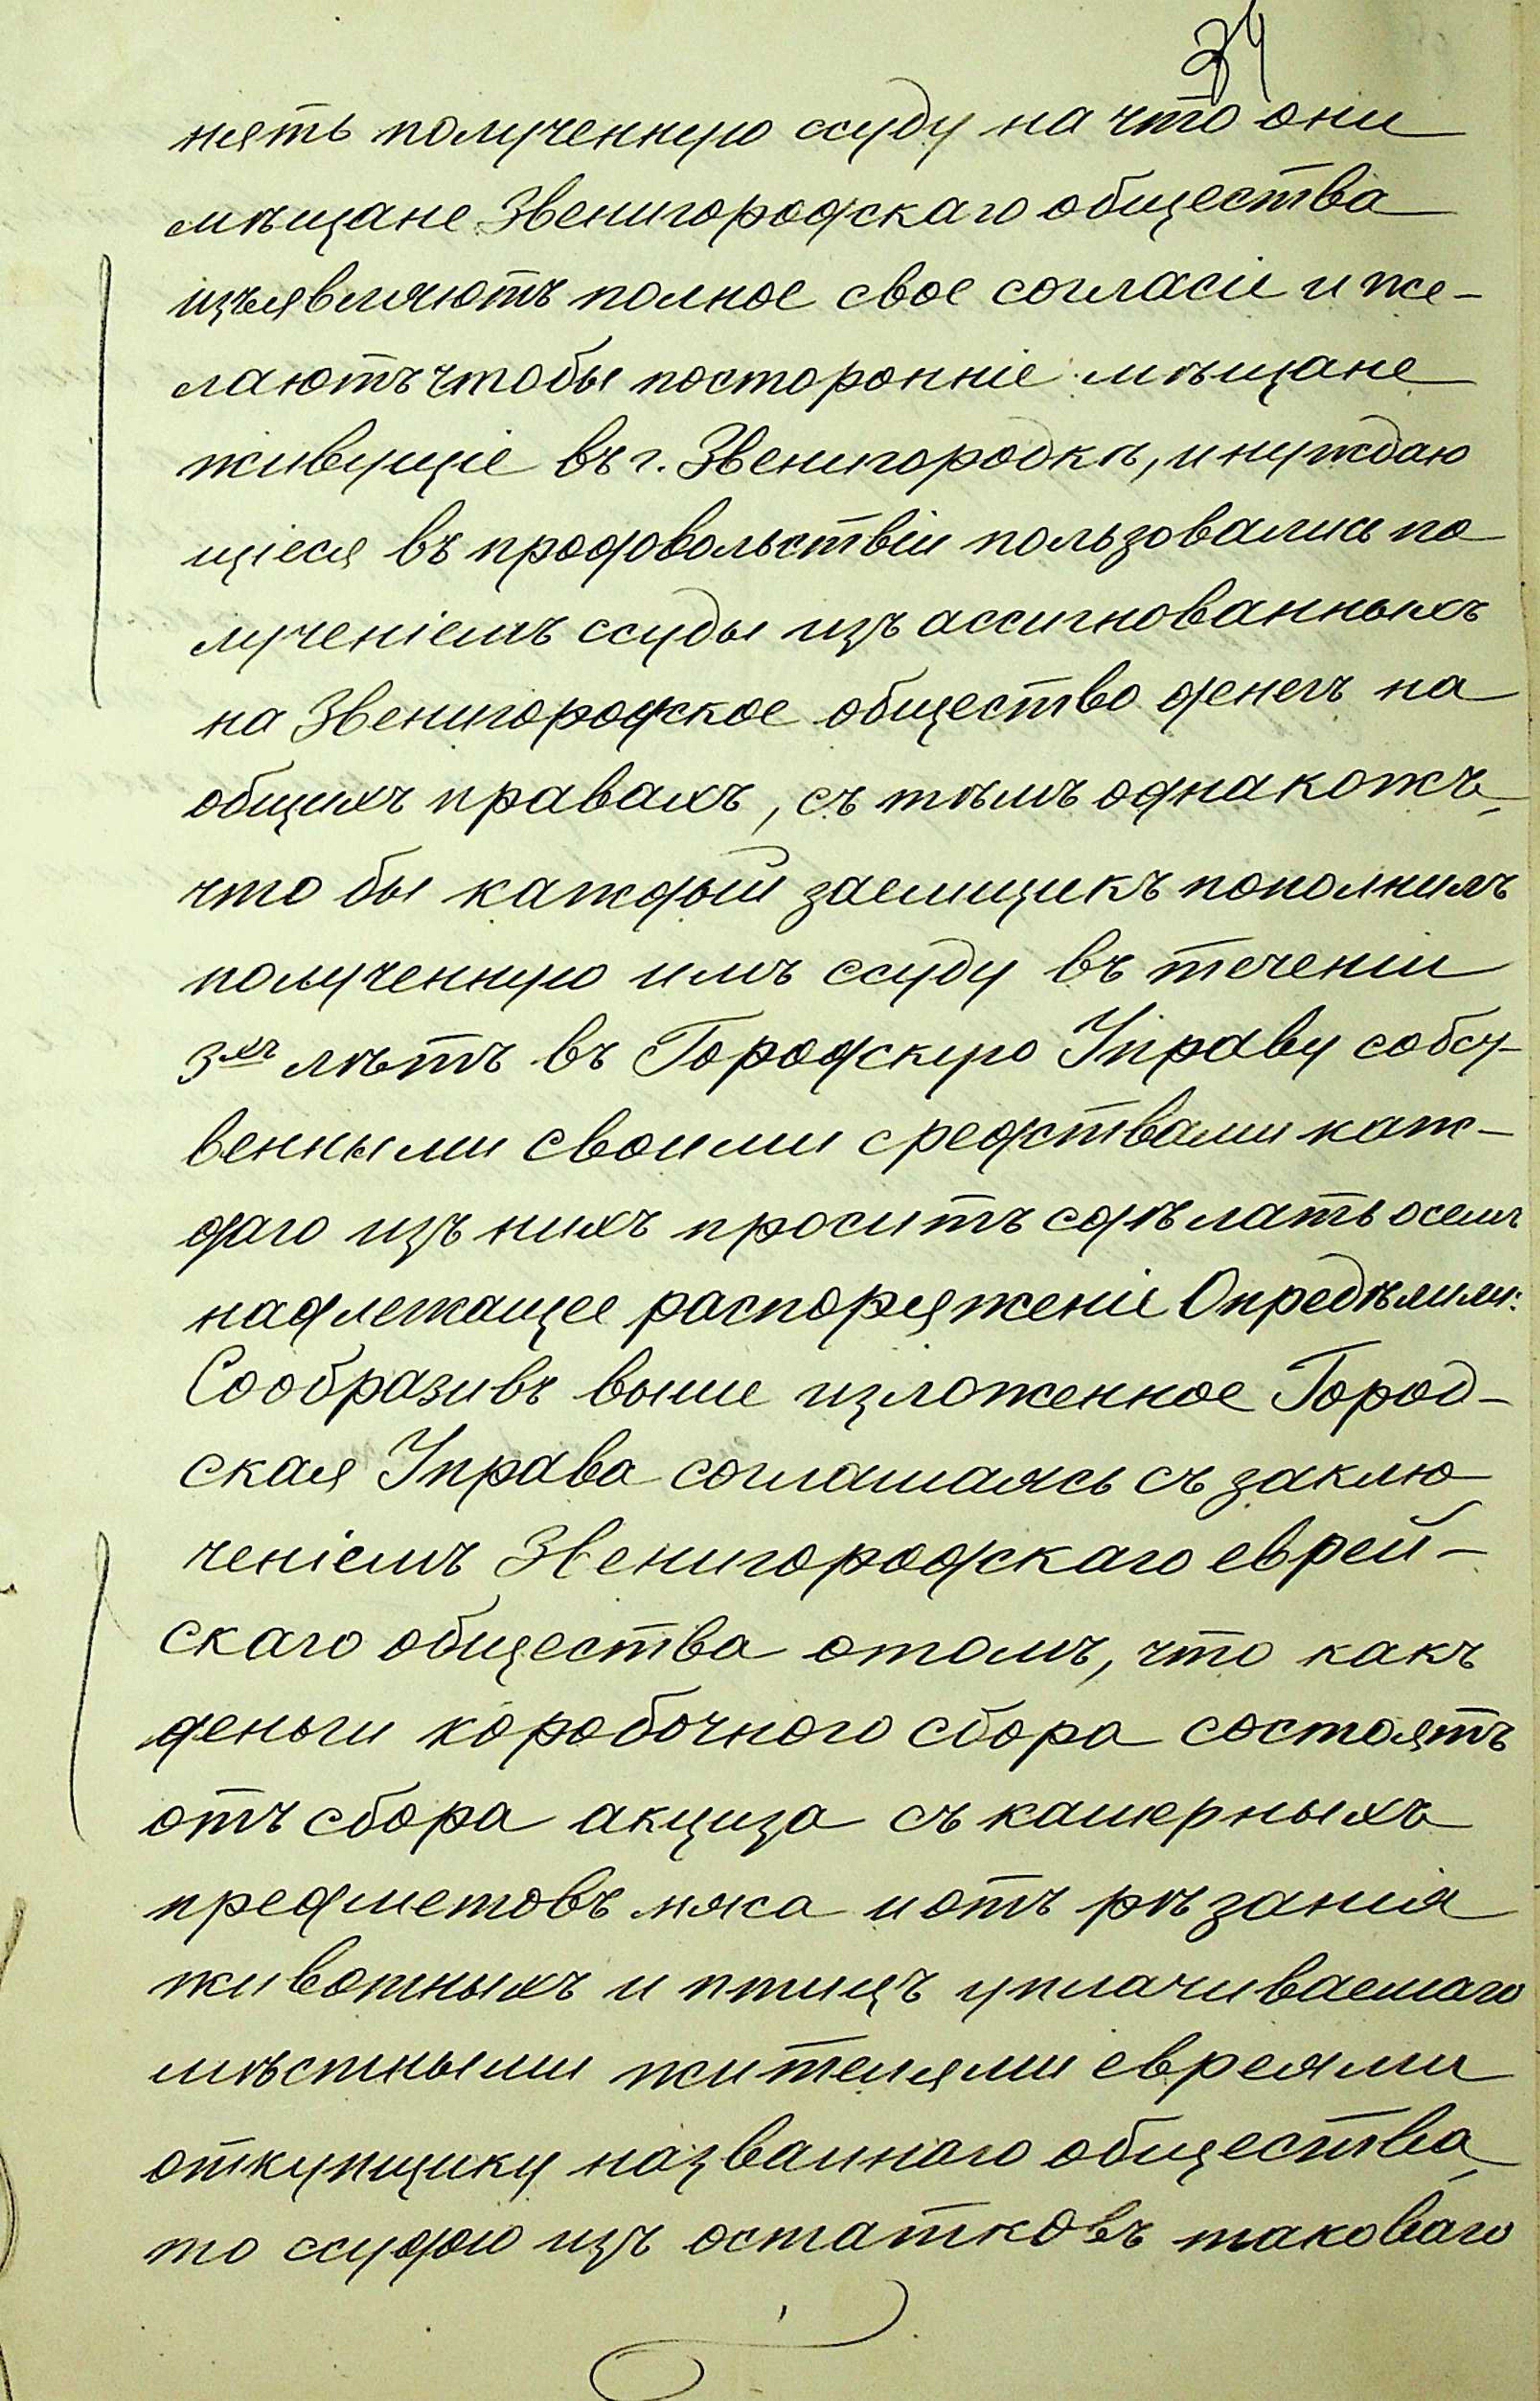 34
нять полученную ссуду на что они
мѣщане Звенигородскаго общества
изъявляютъ полное свое согласіе и же-
лаютъ чтобы посторонніе мѣщане
живущіе въ г. Звенигородкѣ, и нуждаю
щіеся въ продовольствіи пользовались по
лученіемъ ссуды изъ ассигнованныхъ
на Звенигородское общество денегъ на
общихъ правахъ, съ тѣмъ однакожъ,
что бы каждый заемщикъ пополнилъ
полученную имъ ссуду въ теченіи
3хъ лѣтъ въ Городскую Управу собст-
венными своими средствами каж-
даго изъ нихъ проситъ сдѣлать осемъ
надлежащее распоряженіе Опредѣлили:
Сообразивъ выше изложенное Город-
ская Управа соглашаясь съ заклю
ченіемъ Звенигородскаго еврей-
скаго общества отомъ, что какъ
деньги коробочного сбора состоятъ
отъ сбора акциза съ кашерныхъ
предметовъ мяса и отъ рѣзанія
животныхъ и птицъ уплачиваемаго
мѣстными жителями евреями
откупщику названного общества,
то ссудою изъ остатковъ таковаго